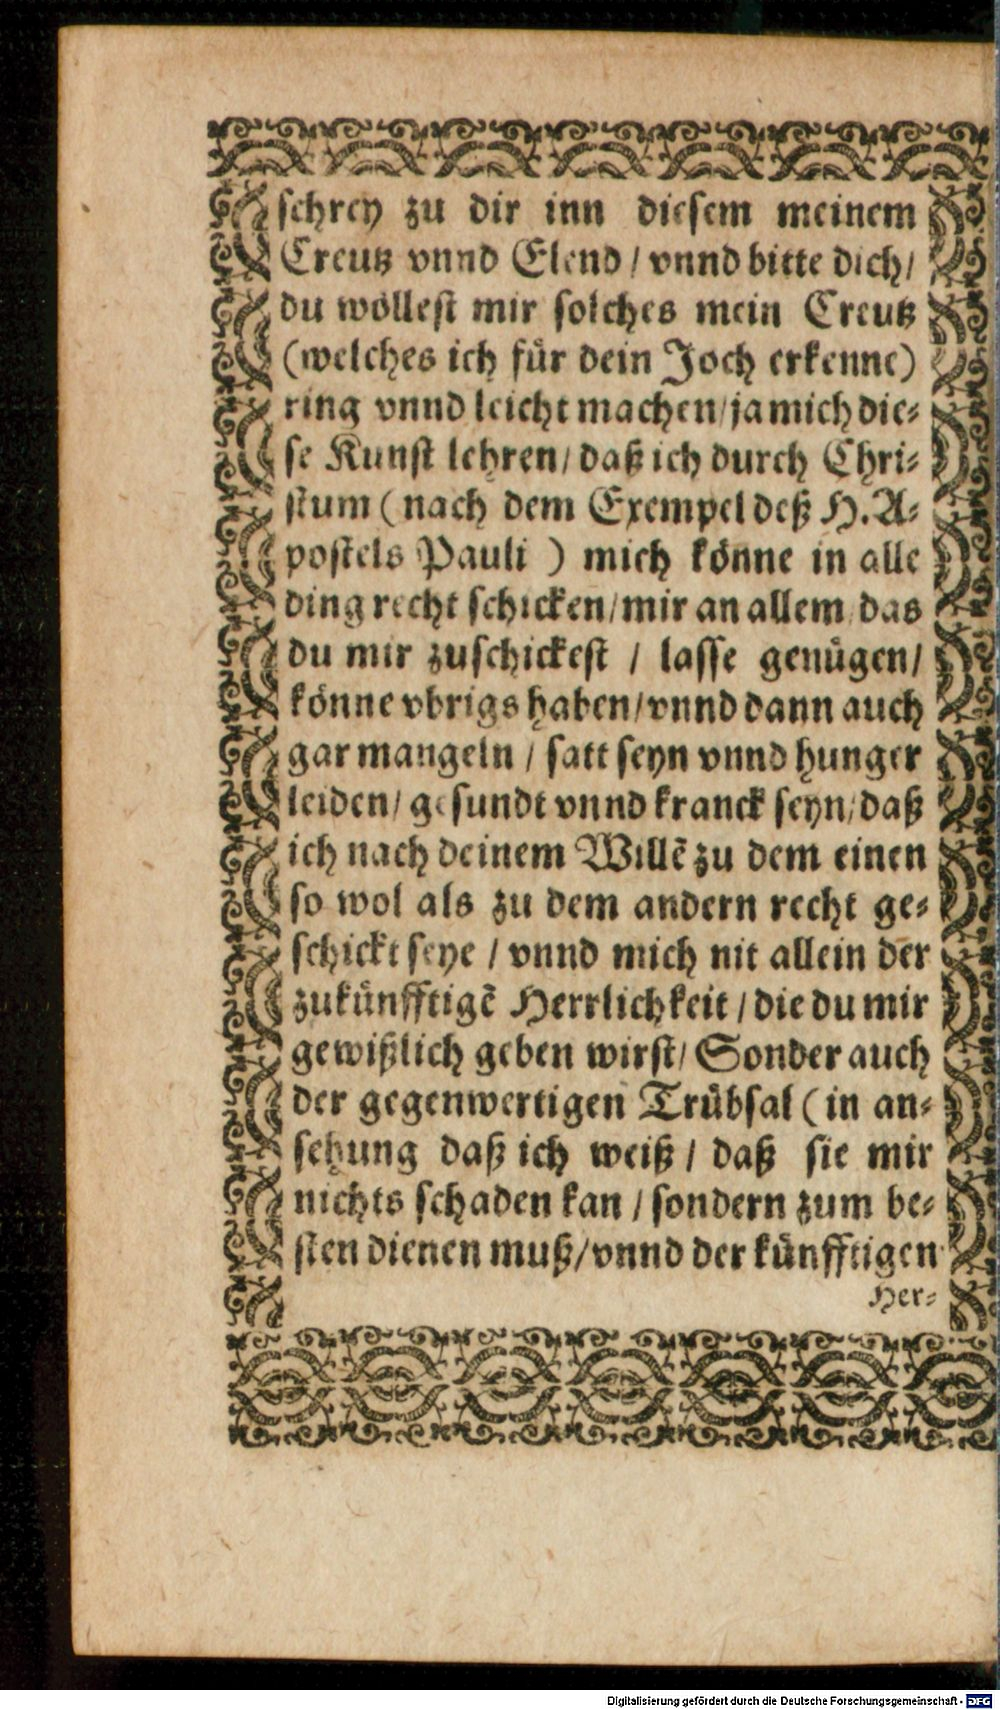 schrey zu dir inn diesem meinem
Creutz vnnd Elend / vnnd bitte dich /
du wöllest mir solches mein Creutz
(welches ich für dein Joch erkenne)
ring vnnd leicht machen / ja mich die⸗
se Kunst lehren / daß ich durch Chri⸗
stum (nach dem Exempel deß H. A⸗
postels Pauli ) mich könne in alle
ding recht schicken / mir an allem / das
du mir zuschickest / lasse genügen /
könne vbrigs haben / vnnd dann auch
gar mangeln / satt seyn vnnd hunger
leiden / gesundt vnnd kranck seyn / daß
ich nach deinem Willẽ zu dem einen
so wol als zu dem andern recht ge⸗
schickt seye / vnnd mich nit allein der
zukünfftigẽ Herrlichkeit / die du mir
gewißlich geben wirst / Sonder auch
der gegenwertigen Trübsal (in an⸗
sehung daß ich weiß / daß sie mir
nichts schaden kan / sondern zum be⸗
sten dienen muß / vnnd der künfftigen
Her⸗
Digitalisierung gefördert durch die Deutsche Forschungsgemeinschaft - DFG